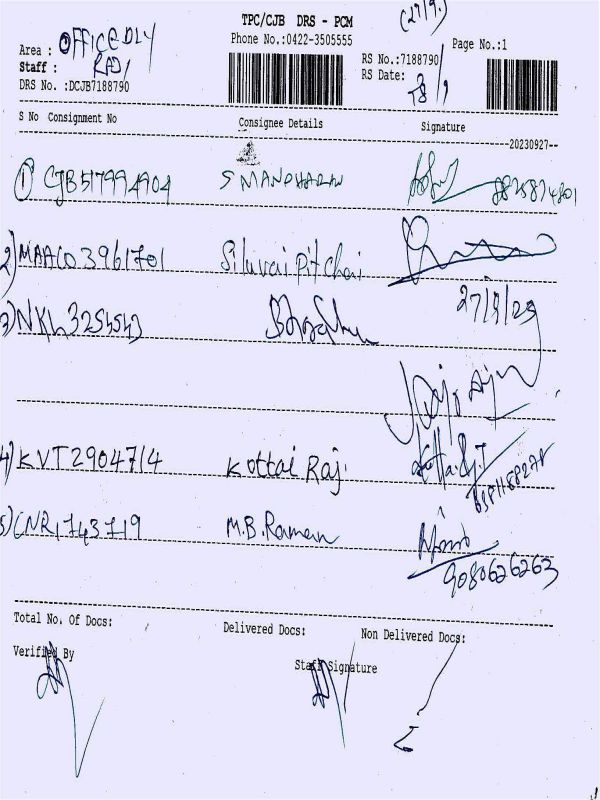 (27/9.)
TPC/CJB DRS - PCM
Phone No.:0422-3505555
Page No.:1
Area : OFFICE DLY
Staff : RAJ
DRS No. :DCJB7188790
RS No.:7188790
RS Date:
S No Consignment No Consignee Details Signature
20230927
1) CJB517994904 S MANOHARAN
2) MAA CO 3961701 Siluvai Pitchai
27/9/23
3) NKL3254543
4) KVT2904714 Kottai Raj.
5) CNR1743719 M.B.Raman
9080626263
Total No. Of Docs: Delivered Docs: Non Delivered Docs:
Verified By Staff Signature